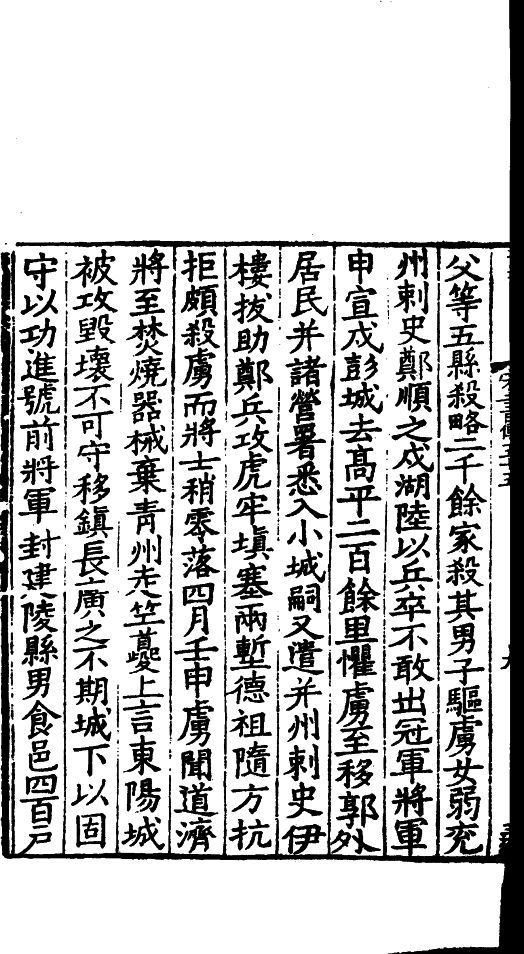 父等五縣殺略二千餘家殺其男子驅虜女弱兖
州刺史鄭順之戍湖陸以兵卒不敢出冠軍將軍
申宣戍彭城去髙平二百餘里懼虜至移郭外
居民并諸營署悉入小城嗣又遣并州刺史伊
樓拔助鄭兵攻虎牢填塞兩塹德祖隨方抗
拒頗殺虜而將士稍零落四月壬申虜聞道濟
將至焚燒器械棄青州走竺夔上言東陽城
被攻毀壞不可守移鎮長廣之不期城下以固
守以功進號前將軍封建陵縣男食邑四百戸